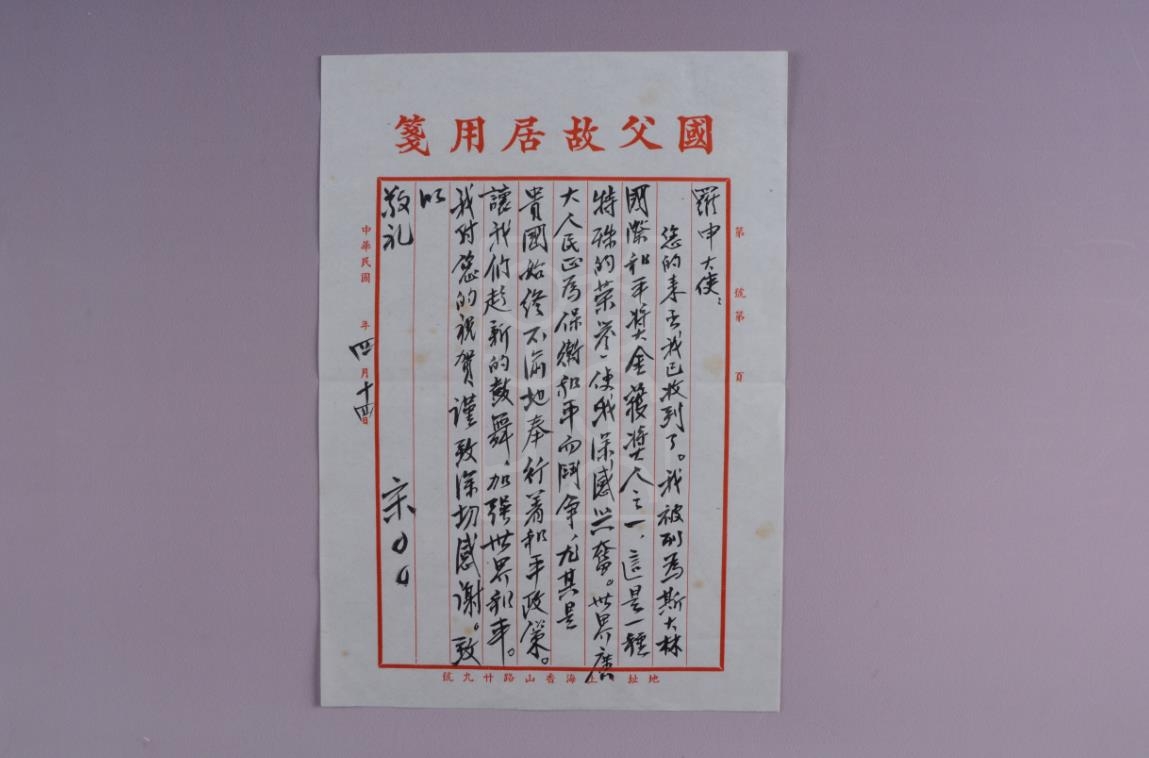 國父故居用箋
第 號第 頁
羅申大使：
您的来函我已收到了。我被列為斯大林
國際和平獎金獲獎人之一，這是一種
特殊的荣誉，使我深感兴奮。世界廣
大人民正為保衛和平而鬥争，尤其是
貴國始终不渝地奉行着和平政策。
讓我们起新的鼓舞，加强世界和平。
我对您的祝賀謹致深切感谢。致
以
敬礼
宋
中華民國 年四月十四日
地址 上海香山路廿九號